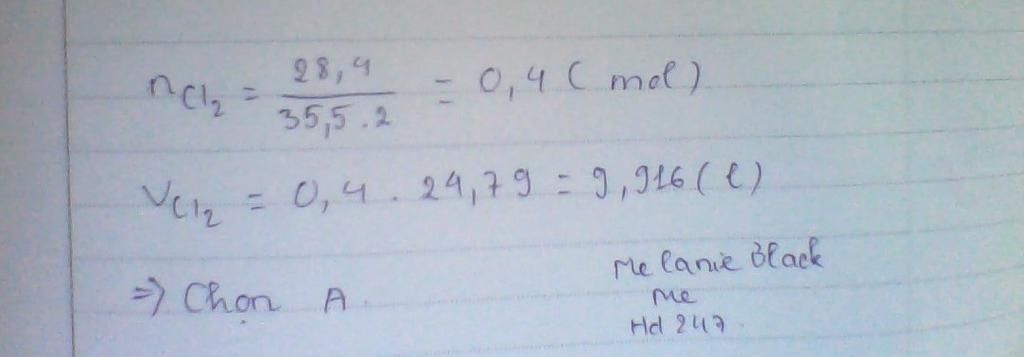 nCl₂ = 28,4 / 35,5 . 2 = 0,4 ( mol )
VCl₂ = 0,4 . 24,79 = 9,916 (l)
=> Chọn A.
Melanie Black
Me
Hd 247.